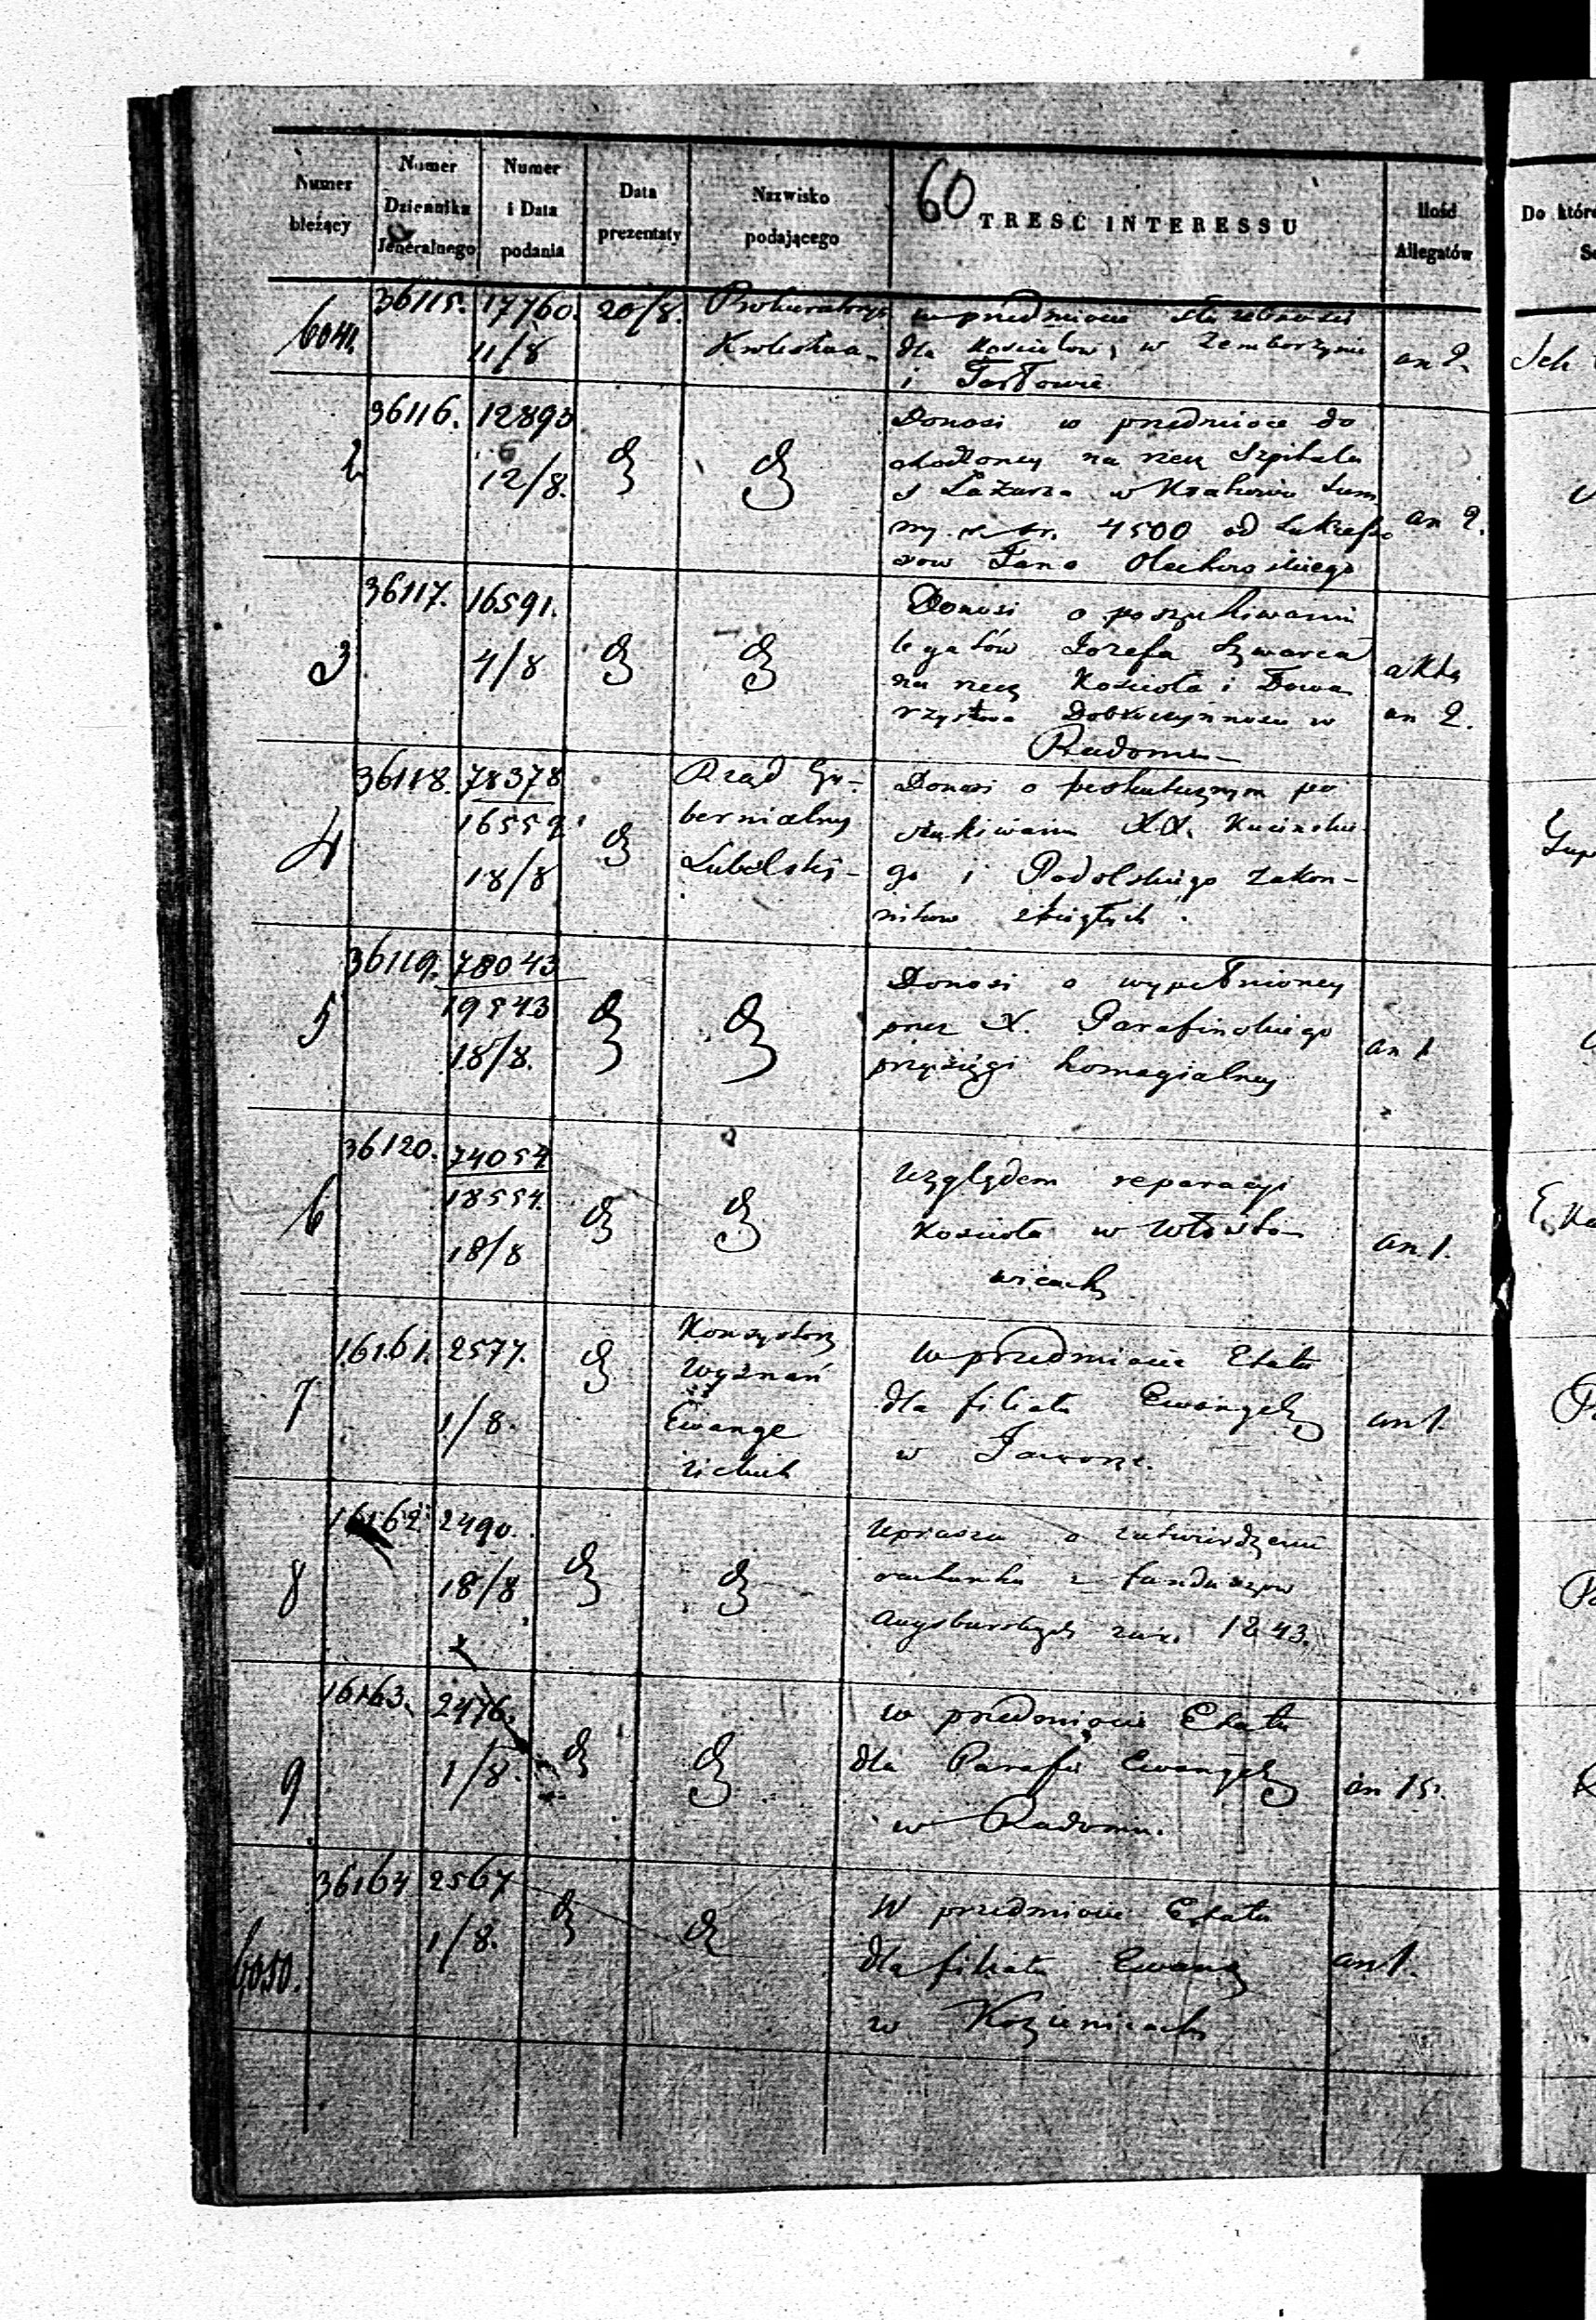 60
Numer bieżący
Numer Dziennika Jeneralnego
Numer i Data podania
Data prezentaty
Nazwisko podającego
TRESC INTERESSU
Ilość Allegatów
Do któr
6041. 36115. 17760. 20/8. Prokuratorya w przedmiocie służebności
11/8 Królestwa dla Kościołów w Zemborzynie an 2.
i Tarłowie
2 36116. 12893 Donosi w przedmiocie do
12/8. na rzecz Szpitala
S Łazarza w Krakowie Sum
my 4500 od Sukcesso an 2.
row Jana
3 36117. 16591. Donosi o poszukiwaniu
4/8 legatów Jozefa Szwarca akta
na rzecz Kościoła i Towa
rzystwa Dobroczynności w an 2.
Radomiu
4 36118. 78378 Rząd Gu- Donosi o bezskutecznym po
16552 bernialny szukiwaniu XX. Kucińskie
18/8 Lubelski go i Podolskiego zakon-
ników zbiegłych.
5 36119. 78043 Donosi o wypełnioney
19843 przez X. Parafińskiego
18/8. przysięgi homagialney an 1
6 36120. 74054 Względem reparacyi
18554. Kościoła w Włosto-
18/8 wicach an 1.
7 16161. 2577. Konsystorz w przedmiocie Etatu
Wyznań
1/8. Ewange dla filiału Ewangel an 1.
lickich w Jaworze.
8 16162 2490. Uprasza o zatwierdzenie
18/8 rachunku z funduszow
Augsburskich za r. 1843.
9 16163. 2476. w przedmiocie Etatu
1/8. dla Parafii Ewangel an 15.
w Radomiu.
6050. 36164 2567 W przedmiocie Etatu
1/8. dla filiału Ewang an 1.
w Kozienicach